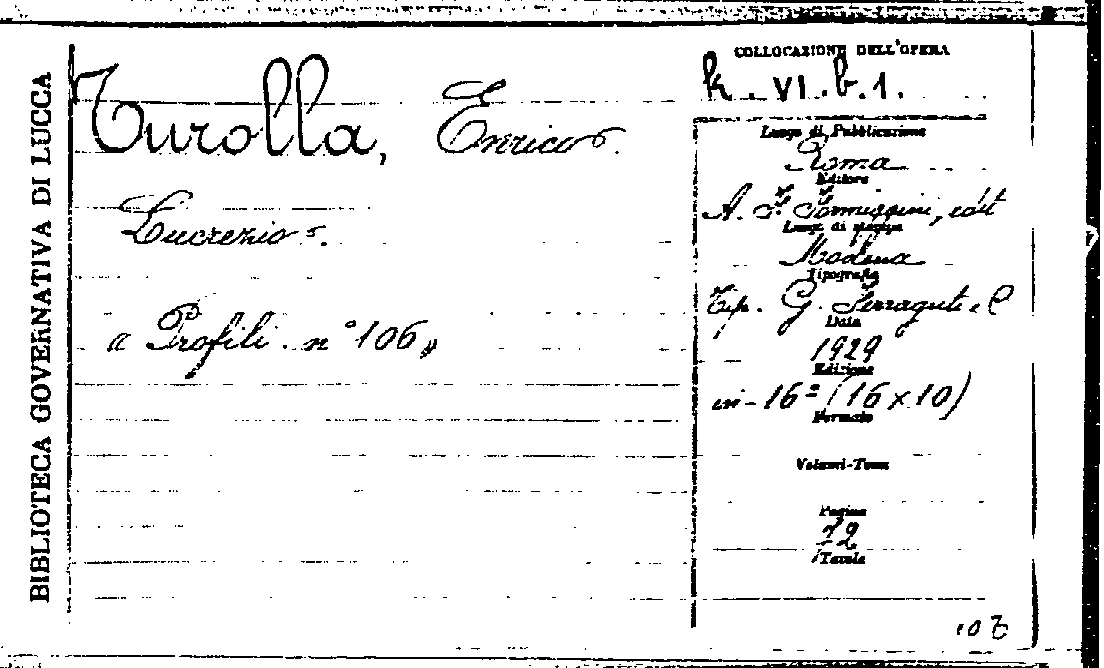 BIBLIOTECA GOVERNATIVA DI LUCCA
Turolla, Enrico.
Lucrezio.
"Profili. n° 106"
COLLOCAZIONE DELL'OPERA
k. VI. b. 1.
Luogo di Pubblicazione
Roma
Editore
A. F. Formiggini, edit
Luogo di stampa
Modena
Tipografia
Tip. G. Ferraguti e C
Data
1929
Edizione
in-16° (16x10)
Formato
Volumi-Tomi
Pagine
72
Tavole